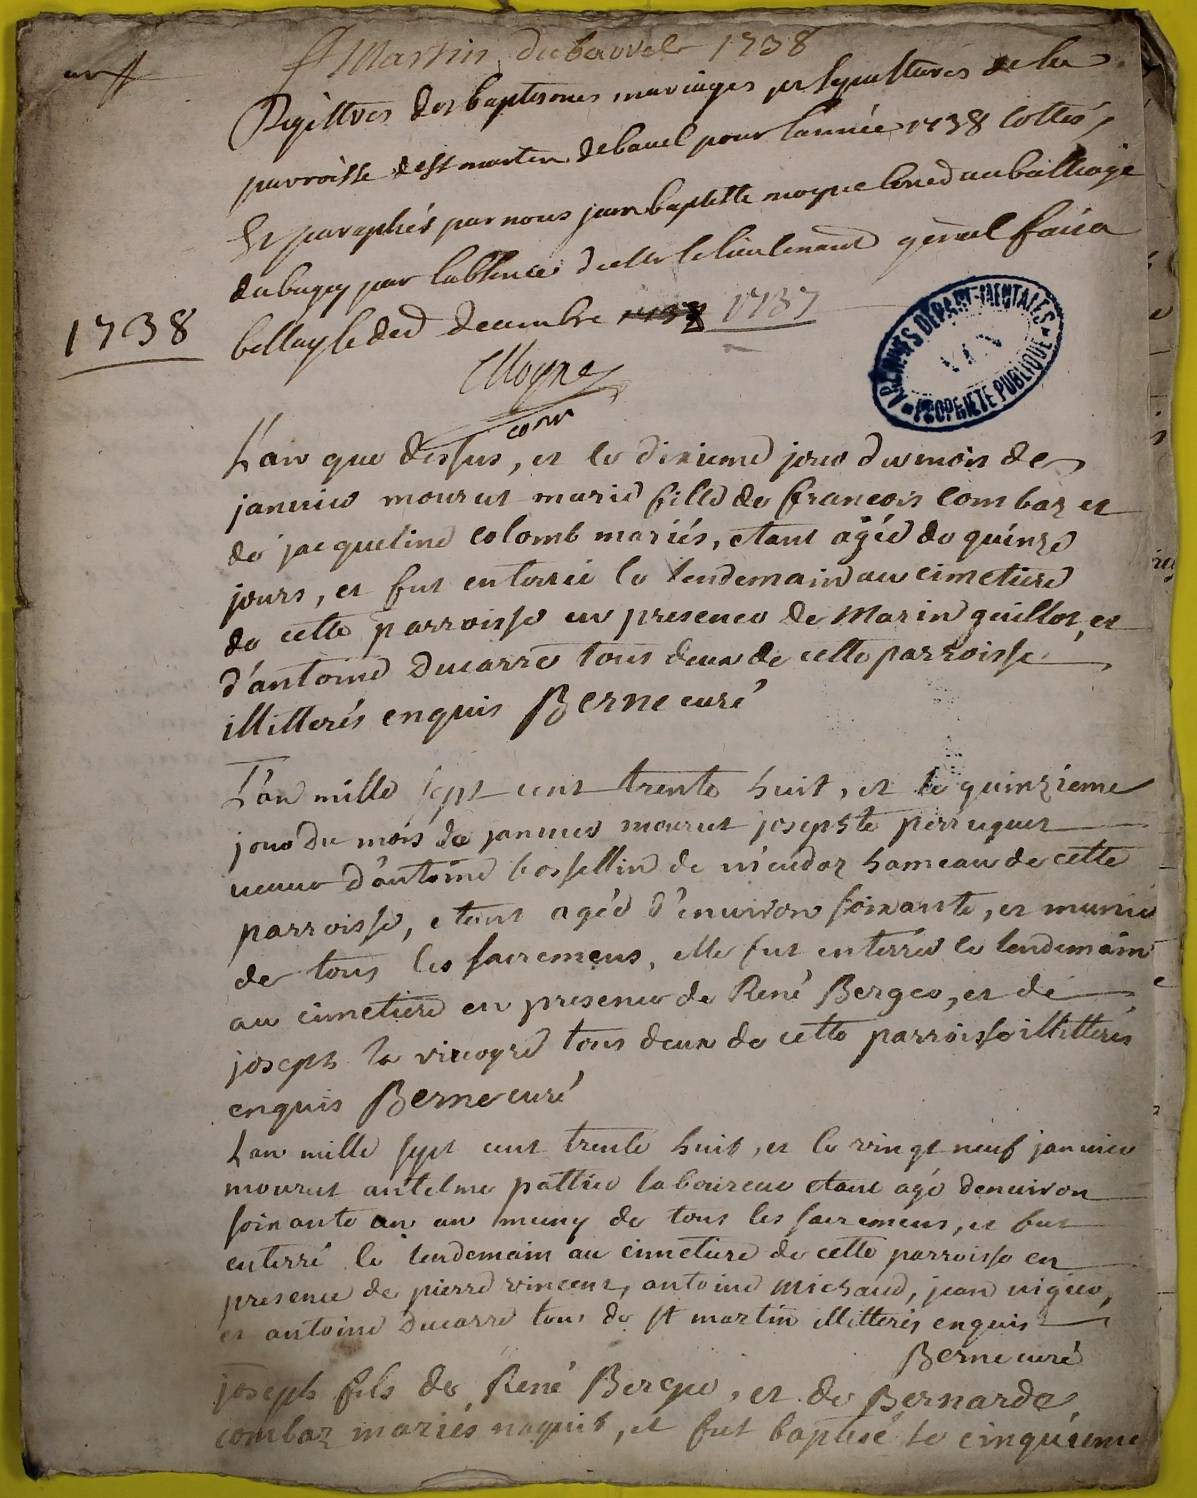 St Martin de bavel 1738
Registres des baptesmes mariages et sepultures de la
parroisse de st martin de bavel pour lannée 1738 Cottés
Et paraphés par nous jean baptiste moyne au bailliage
du bugey pour labsence de le lieutenant general fait a
bellay le decembre 1737
1738
Moyne
ARCHIVES DÉPARTEMENTALES
AIN
PROPRIÉTÉ PUBLIQUE
L'an que dessus, et le dixieme jour du mois de
janvier mourut marie fille de francois Combaz et
de jacqueline colomb mariés, etant agée de quinze
jours, et fut enterrée le lendemain au cimetiere
de cette parroisse en presence de Marin guillot, et
d'antoine Ducarre tous deux de cette parroisse
illitterés enquis Berne curé
L'an mille sept cent trente huit, et le quinzieme
jour du mois de janvier mourut josephte perruquet
veuve d'antoine bossellin de hameau de cette
parroisse, etant agée d'environ soixante, et munie
de tous les sacremens, elle fut enterrée le lendemain
au cimetiere en presence de René Berger, et de
joseph la tous deux de cette parroisse illitterés
enquis Berne curé
L'an mille sept cent trente huit, et le vingt neuf janvier
mourut antelme laboureur etant agé denviron
soixante an muny de tous les sacremens, et fut
enterré le lendemain au cimetiere de cette parroisse en
presence de pierre vincent, antoine Michaud, jean
et antoine Ducarre tous de st martin illitterés enquis
Berne curé
joseph fils de René Berger, et de Bernarde
combaz mariés naquit, et fut baptisé le cinquieme